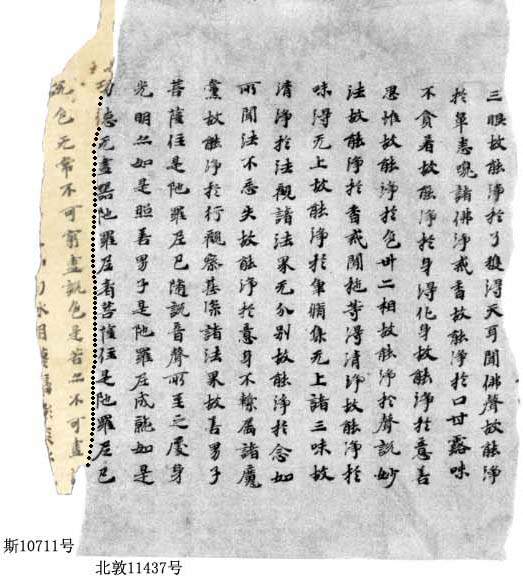 三眼故能淨於了攝得天耳聞佛聲故能淨
於鼻悉嗅諸佛淨戒香故能淨於口甘露味
不貪著故能淨於身得化身故能淨於意善
思惟故能淨於色卅二相故能淨於聲說妙
法故能淨於香戒聞施等得清淨故能淨於
味得无上故能淨於集无上諸三昧故
清淨於法觀諸法果无分別故能淨於念如
所聞法不忘失故能淨於意身不繫屬諸魔
黨故能淨於行觀察甚深諸法果故善男子
菩薩住是陁羅尼已隨說音聲所至之處身
光明如是照善男子是陁羅尼成就如是
功德无盡器陁羅尼者菩薩住是陁羅尼已
說色无常不可窮盡說色是苦不可盡
斯10711号
北敦11437号